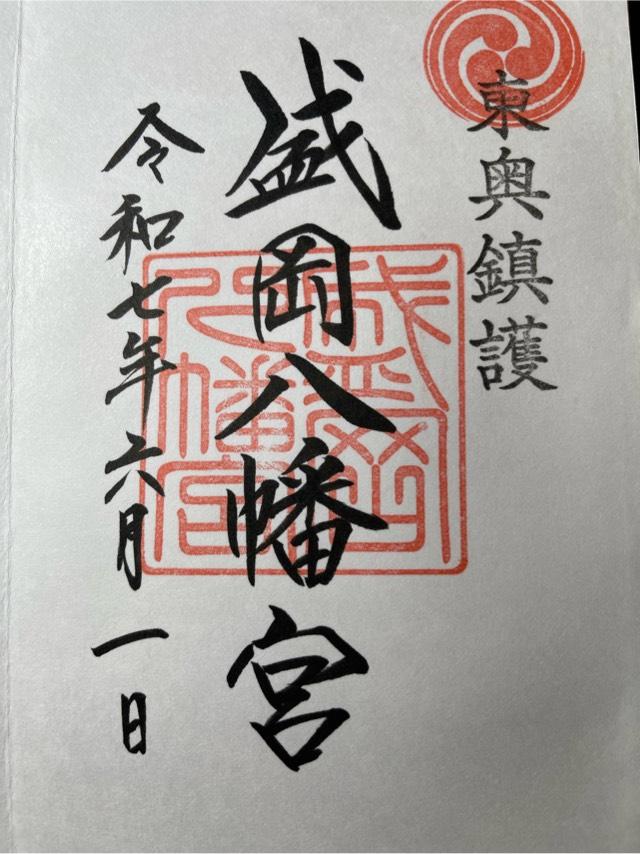 東奥鎮護
盛岡八幡宮
盛岡八幡宮
令和七年六月一日